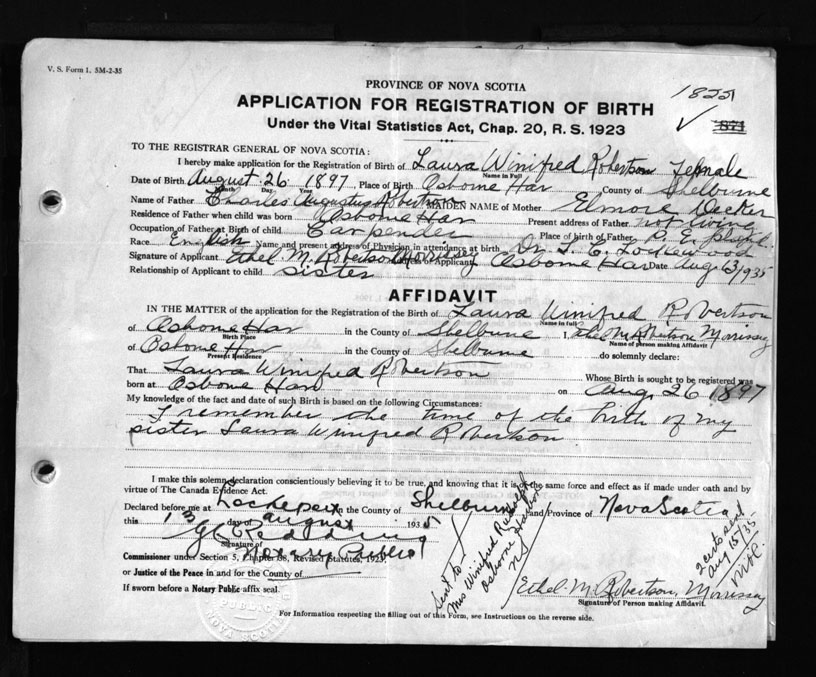 V. S. Form 1. 5M-2-35
PROVINCE OF NOVA SCOTIA
1822
APPLICATION FOR REGISTRATION OF BIRTH
871
Under the Vital Statistics Act, Chap. 20, R. S. 1923
TO THE REGISTRAR GENERAL OF NOVA SCOTIA:
I hereby make application for the Registration of Birth of Laura Winifred Robertson Female
Name in Full
Date of Birth August 26 1897 Place of Birth Osborne Har County of Shelburne
Month Day Year
Name of Father Charles Augustus Robertson MAIDEN NAME of Mother Elmore Decker
Residence of Father when child was born Osborne Har Present address of Father not living
Occupation of Father at Birth of child Carpender Place of birth of Father
Race English Name and present address of Physician in attendance at birth Dr. Lockwood
Signature of Applicant Ethel M. Robertson Morrissey Address of Applicant Osborne Har Date Aug 13/1935
Relationship of Applicant to child sister
AFFIDAVIT
IN THE MATTER of the application for the Registration of the Birth of Laura Winifred Robertson
Name in Full
of Osborne Har in the County of Shelburne I, Ethel M Robertson Morrissey
Birth Place Name of person making Affidavit
of Osborne Har in the County of Shelburne do solemnly declare:
Present Residence
That Laura Winifred Robertson Whose Birth is sought to be registered was
born at Osborne Har on Aug 26 1897
My knowledge of the fact and date of such Birth is based on the following Circumstances:
I remember the time of the birth of my
sister Laura Winifred Robertson
I make this solemn declaration conscientiously believing it to be true, and knowing that it is of the same force and effect as if made under oath and by
virtue of The Canada Evidence Act.
Declared before me at Lockeport in the County of Shelburne and Province of Nova Scotia
this 13 day of August 1935
Signature of
Notary Public
Commissioner under Section 5, Chapter 38, Revised Statutes, 1923
or Justice of the Peace in and for the County of
If sworn before a Notary Public affix seal.
Sent to
Mrs Winifred
Osborne Harbor
NS
2 certs sent
Aug 15/35
Ethel M. Robertson, Morrissey
Signature of Person making Affidavit.
For Information respecting the filling out of this Form, see Instructions on the reverse side.